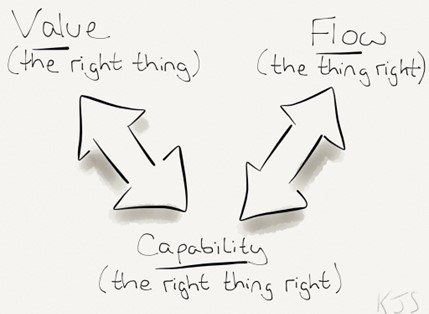 Value
(the right thing)
Flow
(the thing right)
Capability
(the right thing right)
KJS